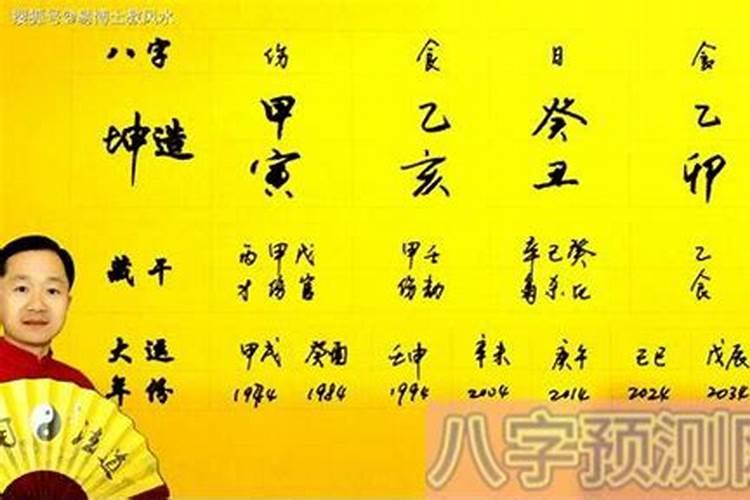 搜狐号@易博士教风水
八字 伤 食 日 食
坤造 甲 乙 癸 乙
寅 亥 丑 卯
藏干 丙甲戊 甲壬 辛己癸 乙
才伤官 伤劫 杀比 食
大运 甲戌 癸酉 壬申 辛未 庚午 己巳 戊辰
年份 1974 1984 1994 2004 2014 2024 2034
道
八字预测